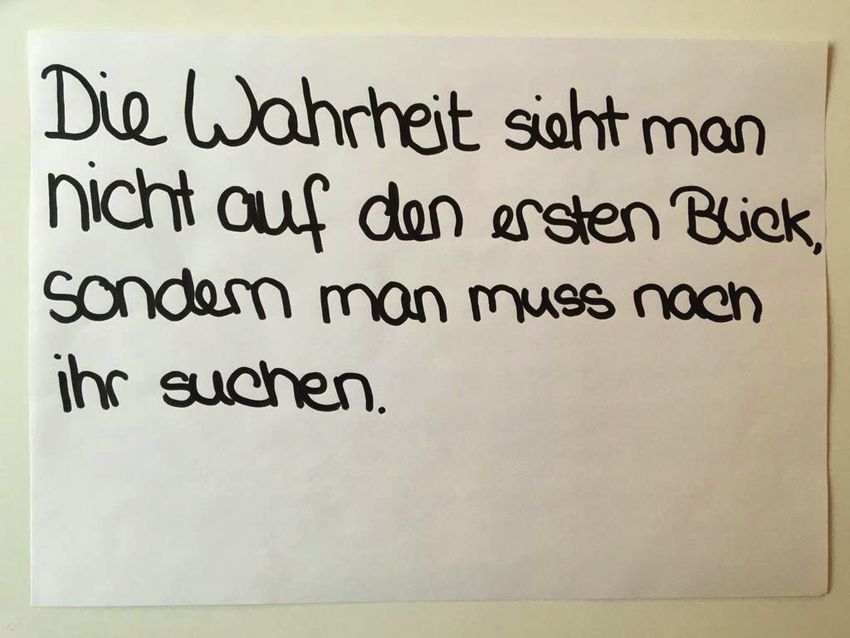 Die Wahrheit sieht man
nicht auf den ersten Blick,
sondern man muss nach
ihr suchen.